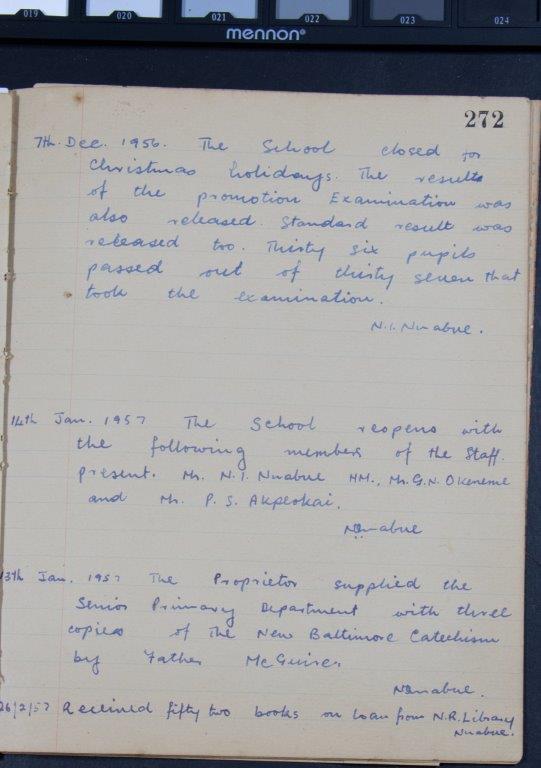 019 020 021 022 023 024
mennon®
272
7th. Dec. 1956. The School closed for
Christmas holidays. The results
of the promotion Examination was
also released. Standard result was
released too. Thirty six pupils
passed out of thirty seven that
took the examination.
N.I. Nwabue.
14th Jan. 1957 The School reopens with
the following members of the Staff.
present. Mr. N.I. Nwabue HM., Mr. G.N. Okeneme
and Mr. P. S. Akpeokai.
Nwabue
Jan. 1957 The Proprietor supplied the
Senior Primary Department with three
copies of The New Baltimore Catechism
by Father McGuire.
Nwabue.
26/2/57 Received fifty two books on loan from N.R. Library
Nwabue.